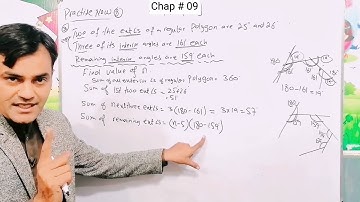 Chap # 09
Practice Now 8
Two of the ext∠s of a regular polygon are 25° and 26°
Three of its interior angles are 161 each
Remaining interior angles are 159 each
Find value of n
Sum of exterior ∠s of regular polygon = 360
Sum of 1st two ext∠s = 25+26
= 51
Sum of next three ext∠s = 3(180-161) = 3×19 = 57
Sum of remaining ext∠s = (n-5)(180-159)
180-161=19°